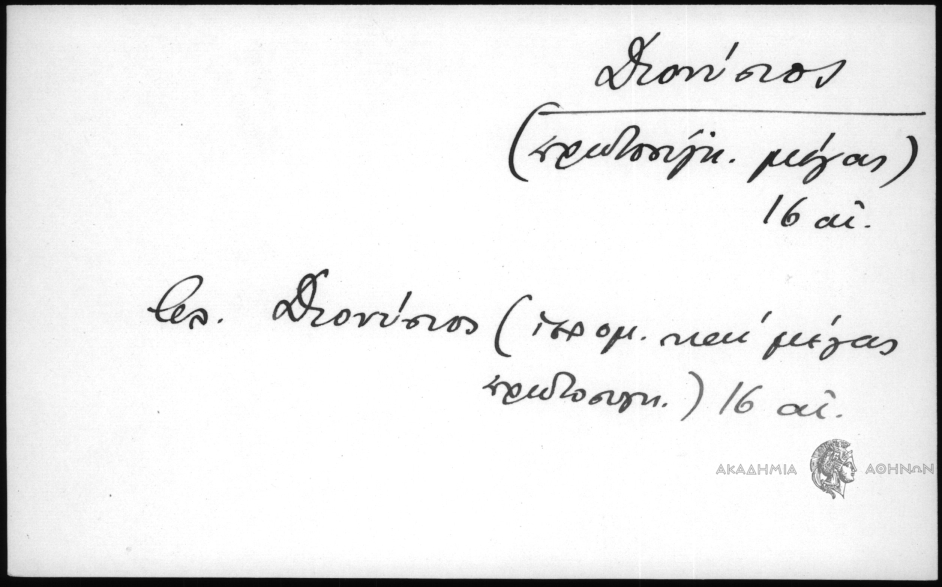 Διονύσιος
(πρωτοσύγκ. μέγας)
16 αἰ.
βλ. Διονύσιος (ἱερομ. καί μέγας
πρωτοσυγκ.) 16 αἰ.
ΑΚΑΔΗΜΙΑ ΑΘΗΝΩΝ